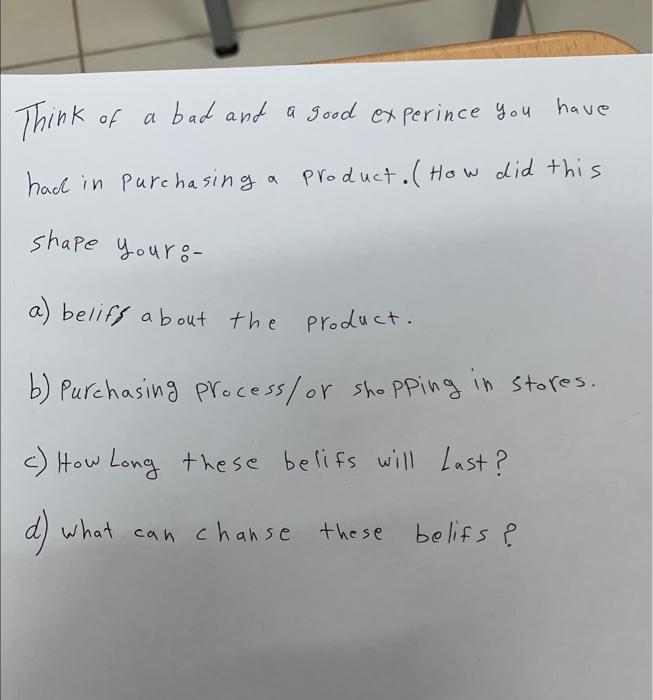 Think of a bad and a good experince you have
had in purchasing a product. (How did this
shape your:-
a) belifs about the product.
b) Purchasing process/or shopping in stores.
c) How Long these belifs will Last?
d) what can chanse these belifs?